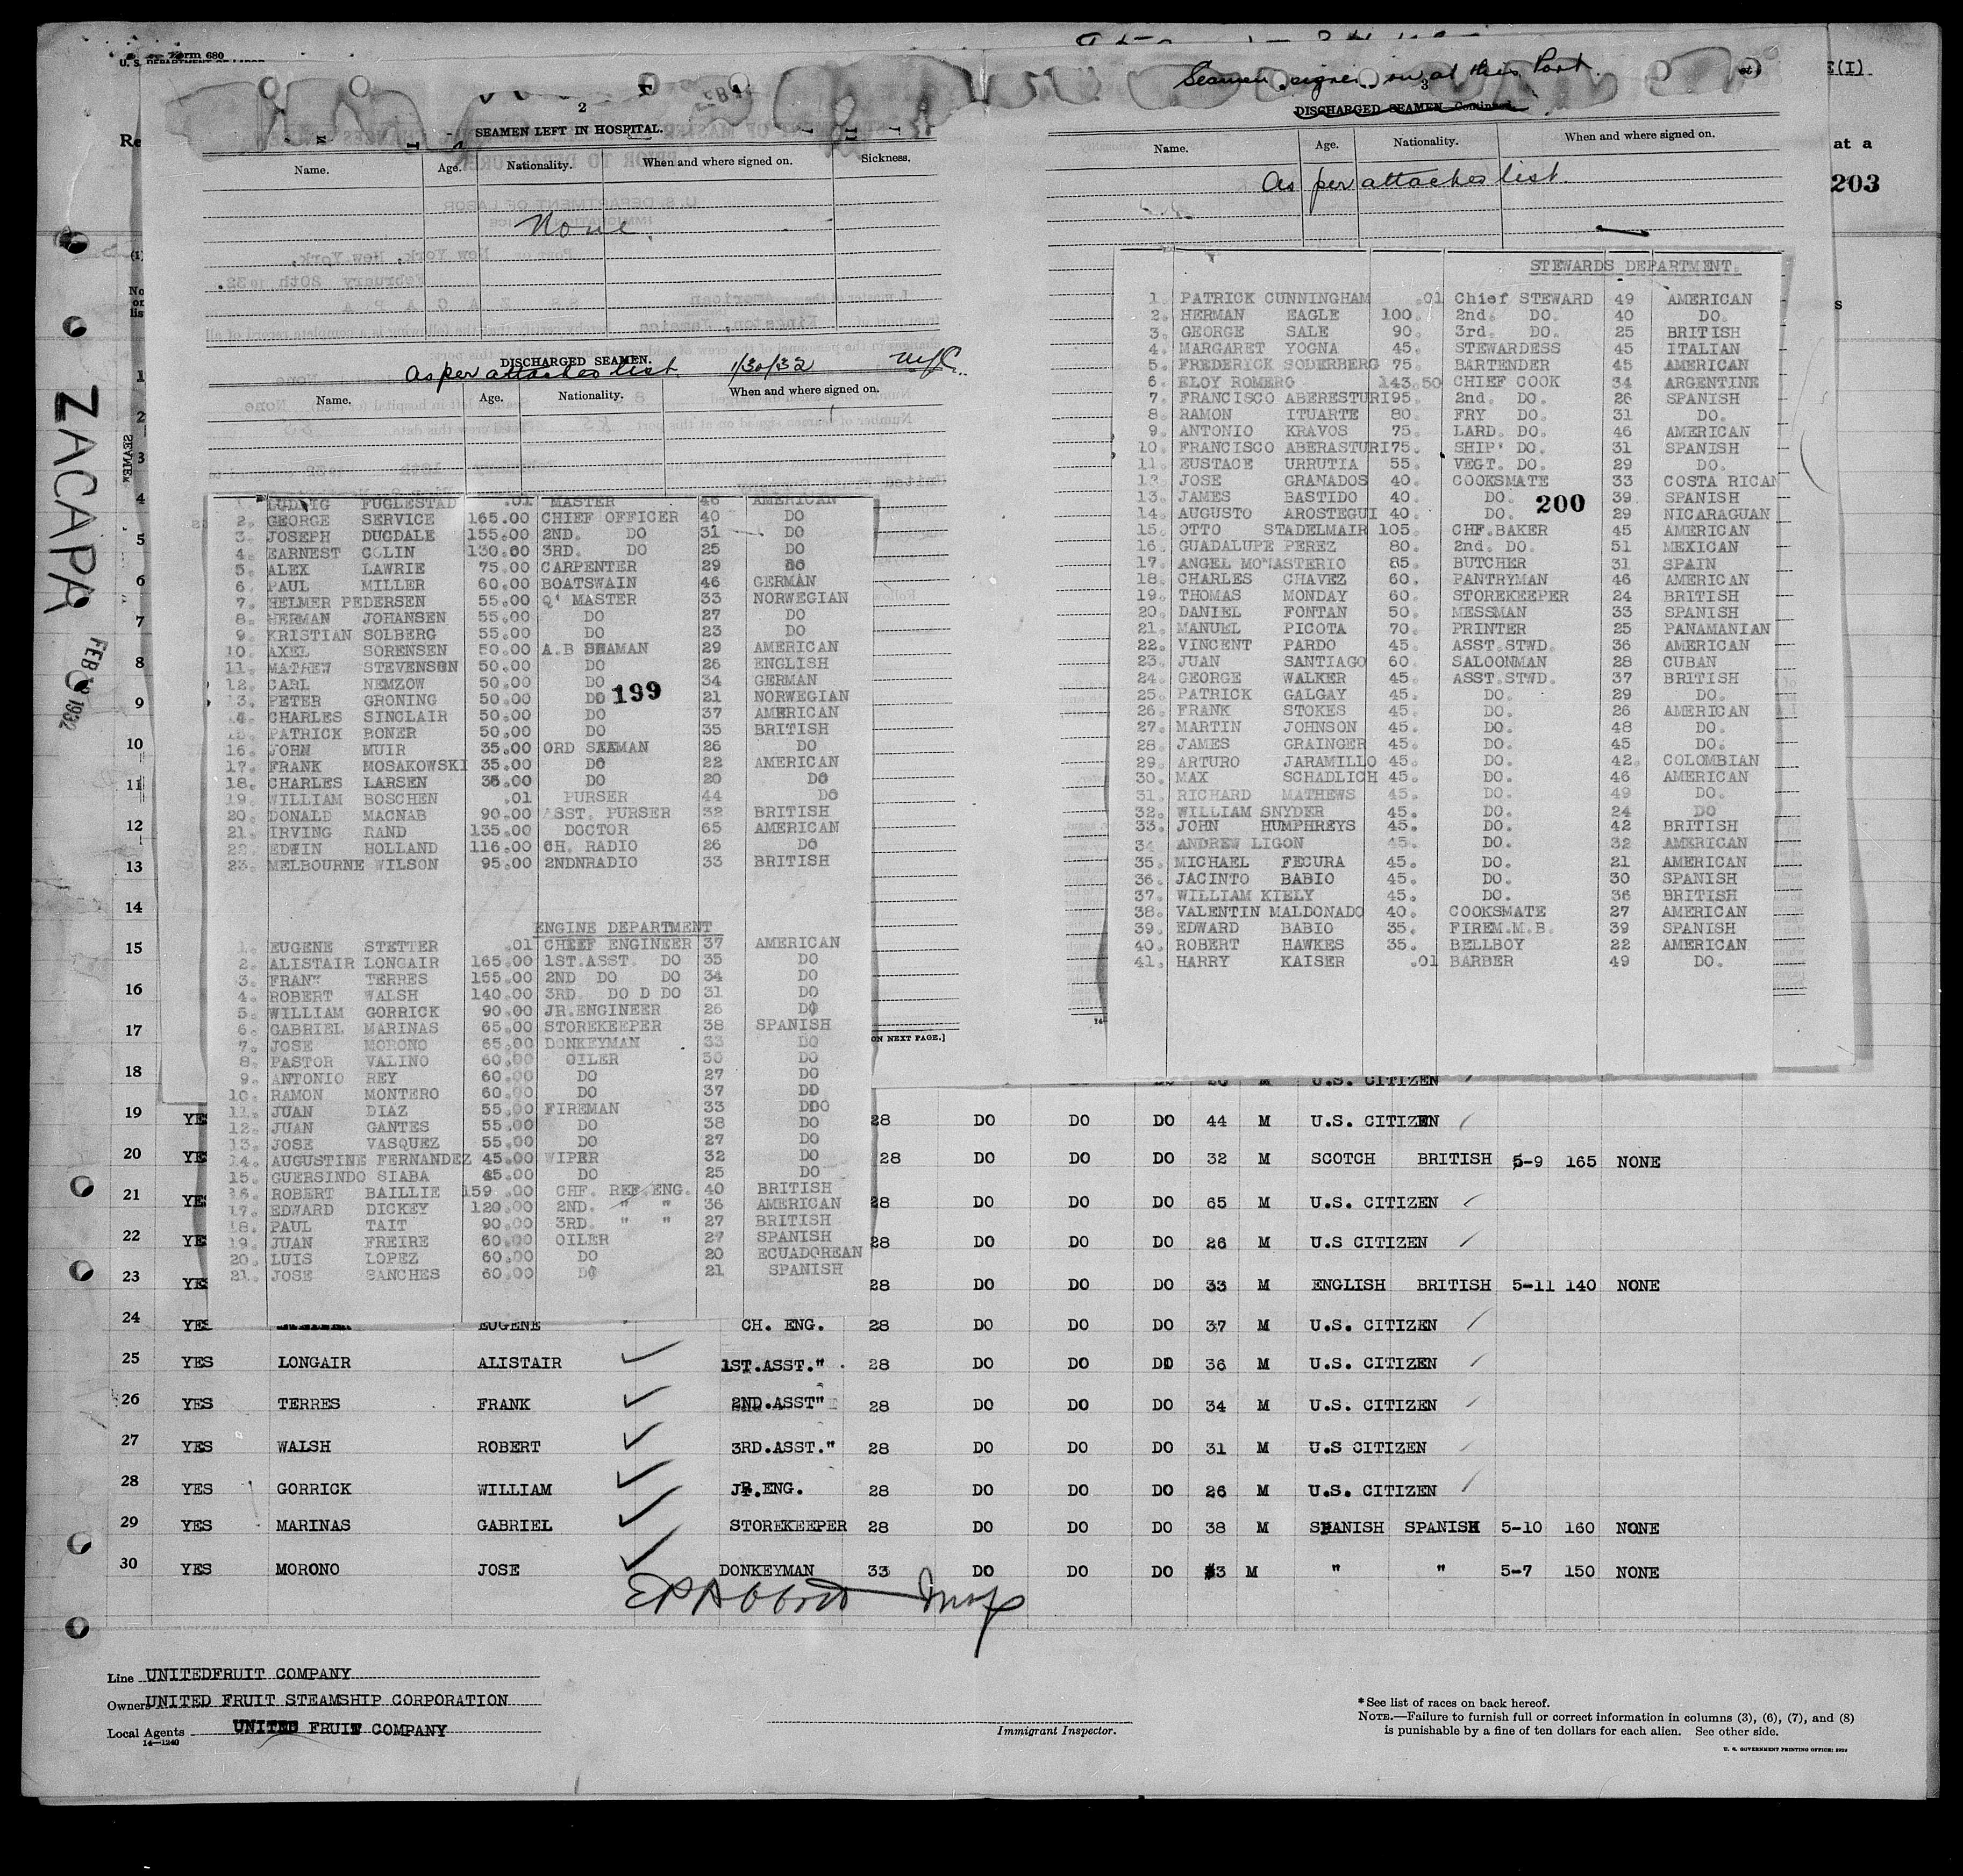 Form 680
U. S. DEPARTMENT OF LABOR
2
SEAMEN LEFT IN HOSPITAL.
Name. Age. Nationality. When and where signed on. Sickness.
None
DISCHARGED SEAMEN.
As per attached list 1/30/32
Name. Age. Nationality. When and where signed on.
1. LUDWIG FUGLESTAD .01 MASTER 46 AMERICAN
2. GEORGE SERVICE 165.00 CHIEF OFFICER 40 DO
3. JOSEPH DUGDALE 155.00 2ND. DO 31 DO
4. EARNEST COLIN 130.00 3RD. DO 25 DO
5. ALEX LAWRIE 75.00 CARPENTER 29 DO
6. PAUL MILLER 60.00 BOATSWAIN 46 GERMAN
7. HELMER PEDERSEN 55.00 Q' MASTER 33 NORWEGIAN
8. HERMAN JOHANSEN 55.00 DO 27 DO
9. KRISTIAN SOLBERG 55.00 DO 23 DO
10. AXEL SORENSEN 50.00 A.B SEAMAN 29 AMERICAN
11. MATHEW STEVENSON 50.00 DO 26 ENGLISH
12. CARL NEMZOW 50.00 DO 34 GERMAN
13. PETER GRONING 50.00 DO 199 21 NORWEGIAN
14. CHARLES SINCLAIR 50.00 DO 37 AMERICAN
15. PATRICK BONER 50.00 DO 35 BRITISH
16. JOHN MUIR 35.00 ORD SEAMAN 26 DO
17. FRANK MOSAKOWSKI 35.00 DO 22 AMERICAN
18. CHARLES LARSEN 35.00 DO 20 DO
19. WILLIAM BOSCHEN .01 PURSER 44 DO
20. DONALD MACNAB 90.00 ASST. PURSER 32 BRITISH
21. IRVING RAND 135.00 DOCTOR 65 AMERICAN
22. EDWIN HOLLAND 116.00 CH. RADIO 26 DO
23. MELBOURNE WILSON 95.00 2NDNRADIO 33 BRITISH
ENGINE DEPARTMENT
1. EUGENE STETTER .01 CHEEF ENGINEER 37 AMERICAN
2. ALISTAIR LONGAIR 165.00 1ST.ASST. DO 35 DO
3. FRANK TERRES 155.00 2ND DO DO 34 DO
4. ROBERT WALSH 140.00 3RD. DO D DO 31 DO
5. WILLIAM GORRICK 90.00 JR.ENGINEER 26 DO
6. GABRIEL MARINAS 65.00 STOREKEEPER 38 SPANISH
7. JOSE MORONO 65.00 DONKEYMAN 33 DO
8. PASTOR VALINO 60.00 OILER 50 DO
9. ANTONIO REY 60.00 DO 27 DO
10. RAMON MONTERO 60.00 DO 37 DO
11. JUAN DIAZ 55.00 FIREMAN 33 DDO
12. JUAN GANTES 55.00 DO 38 DO
13. JOSE VASQUEZ 55.00 DO 27 DO
14. AUGUSTINE FERNANDEZ 45.00 WIPER 32 DO
15. GUERSINDO SIABA 45.00 DO 25 DO
16. ROBERT BAILLIE 159 .00 CHF. REF.ENG. 40 BRITISH
17. EDWARD DICKEY 120.00 2ND. " " 36 AMERICAN
18. PAUL TAIT 90.00 3RD. " " 27 BRITISH
19. JUAN FREIRE 60.00 OILER 27 SPANISH
20. LUIS LOPEZ 60.00 DO 20 ECUADOREAN
21. JOSE SANCHES 60.00 DO 21 SPANISH
Seamen signed on at this Port.
3
DISCHARGED SEAMEN—Continued.
Name. Age. Nationality. When and where signed on.
As per attached list.
STEWARDS DEPARTMENT.
1. PATRICK CUNNINGHAM .01 Chief STEWARD 49 AMERICAN
2. HERMAN EAGLE 100. 2nd. DO. 40 DO.
3. GEORGE SALE 90. 3rd. DO. 25 BRITISH
4. MARGARET YOGNA 45. STEWARDESS 45 ITALIAN
5. FREDERICK SODERBERG 75. BARTENDER 45 AMERICAN
6. ELOY ROMERO 143.50 CHIEF COOK 34 ARGENTINE
7. FRANCISCO ABERESTURI95. 2nd. DO. 26 SPANISH
8. RAMON ITUARTE 80. FRY DO. 31 DO.
9. ANTONIO KRAVOS 75. LARD. DO. 46 AMERICAN
10. FRANCISCO ABERASTURI75. SHIP' DO. 31 SPANISH
11. EUSTACE URRUTIA 55. VEGT. DO. 29 DO.
12. JOSE GRANADOS 40. COOKSMATE 33 COSTA RICAN
13. JAMES BASTIDO 40. DO. 200 39 SPANISH
14. AUGUSTO AROSTEGUI 40. DO. 29 NICARAGUAN
15. OTTO STADELMAIR 105. CHF.BAKER 45 AMERICAN
16. GUADALUPE PEREZ 80. 2nd. DO. 51 MEXICAN
17. ANGEL MONASTERIO 85. BUTCHER 31 SPAIN
18. CHARLES CHAVEZ 60. PANTRYMAN 46 AMERICAN
19. THOMAS MONDAY 60. STOREKEEPER 24 BRITISH
20. DANIEL FONTAN 50. MESSMAN 33 SPANISH
21. MANUEL PICOTA 70. PRINTER 25 PANAMANIAN
22. VINCENT PARDO 45. ASST.STWD. 36 AMERICAN
23. JUAN SANTIAGO 60. SALOONMAN 28 CUBAN
24. GEORGE WALKER 45. ASST.STWD. 37 BRITISH
25. PATRICK GALGAY 45. DO. 29 DO.
26. FRANK STOKES 45. DO. 26 AMERICAN
27. MARTIN JOHNSON 45. DO. 48 DO.
28. JAMES GRAINGER 45. DO. 45 DO.
29. ARTURO JARAMILLO 45. DO. 42. COLOMBIAN
30. MAX SCHADLICH 45. DO. 46 AMERICAN
31. RICHARD MATHEWS 45. DO. 49 DO.
32. WILLIAM SNYDER 45. DO. 24 DO
33. JOHN HUMPHREYS 45. DO. 42 BRITISH
34 ANDREW LIGON 45. DO. 32 AMERICAN
35. MICHAEL FECURA 45. DO. 21 AMERICAN
36. JACINTO BABIO 45. DO. 30 SPANISH
37. WILLIAM KIELY 45. DO. 36 BRITISH
38. VALENTIN MALDONADO 40. COOKSMATE 27 AMERICAN
39. EDWARD BABIO 35. FIREM.M.B. 39 SPANISH
40. ROBERT HAWKES 35. BELLBOY 22 AMERICAN
41. HARRY KAISER .01 BARBER 49 DO.
at a
203
ZACAPA
1932
ON NEXT PAGE.]
1
2
3
4
5
6
7
8
9
10
11
12
13
14
15
16
17
18 U.S. CITIZEN
19 YES 28 DO DO DO 44 M U.S. CITIZEN
20 YES 28 DO DO DO 32 M SCOTCH BRITISH 5-9 165 NONE
21 YES 28 DO DO DO 65 M U.S. CITIZEN
22 YES 28 DO DO DO 26 M U.S CITIZEN
23 YES 28 DO DO DO 33 M ENGLISH BRITISH 5-11 140 NONE
24 YES EUGENE CH. ENG. 28 DO DO DO 37 M U.S. CITIZEN
25 YES LONGAIR ALISTAIR 1ST.ASST." 28 DO DO DO 36 M U.S. CITIZEN
26 YES TERRES FRANK 2ND.ASST" 28 DO DO DO 34 M U.S. CITIZEN
27 YES WALSH ROBERT 3RD.ASST." 28 DO DO DO 31 M U.S CITIZEN
28 YES GORRICK WILLIAM JR.ENG. 28 DO DO DO 26 M U.S. CITIZEN
29 YES MARINAS GABRIEL STOREKEEPER 28 DO DO DO 38 M SPANISH SPANISH 5-10 160 NONE
30 YES MORONO JOSE DONKEYMAN 33 DO DO DO 33 M " " 5-7 150 NONE
Line UNITEDFRUIT COMPANY
Owners UNITED FRUIT STEAMSHIP CORPORATION
Local Agents UNITED FRUIT COMPANY
14—1240
Immigrant Inspector.
* See list of races on back hereof.
NOTE.—Failure to furnish full or correct information in columns (3), (6), (7), and (8)
is punishable by a fine of ten dollars for each alien. See other side.
U. S. GOVERNMENT PRINTING OFFICE: 1929